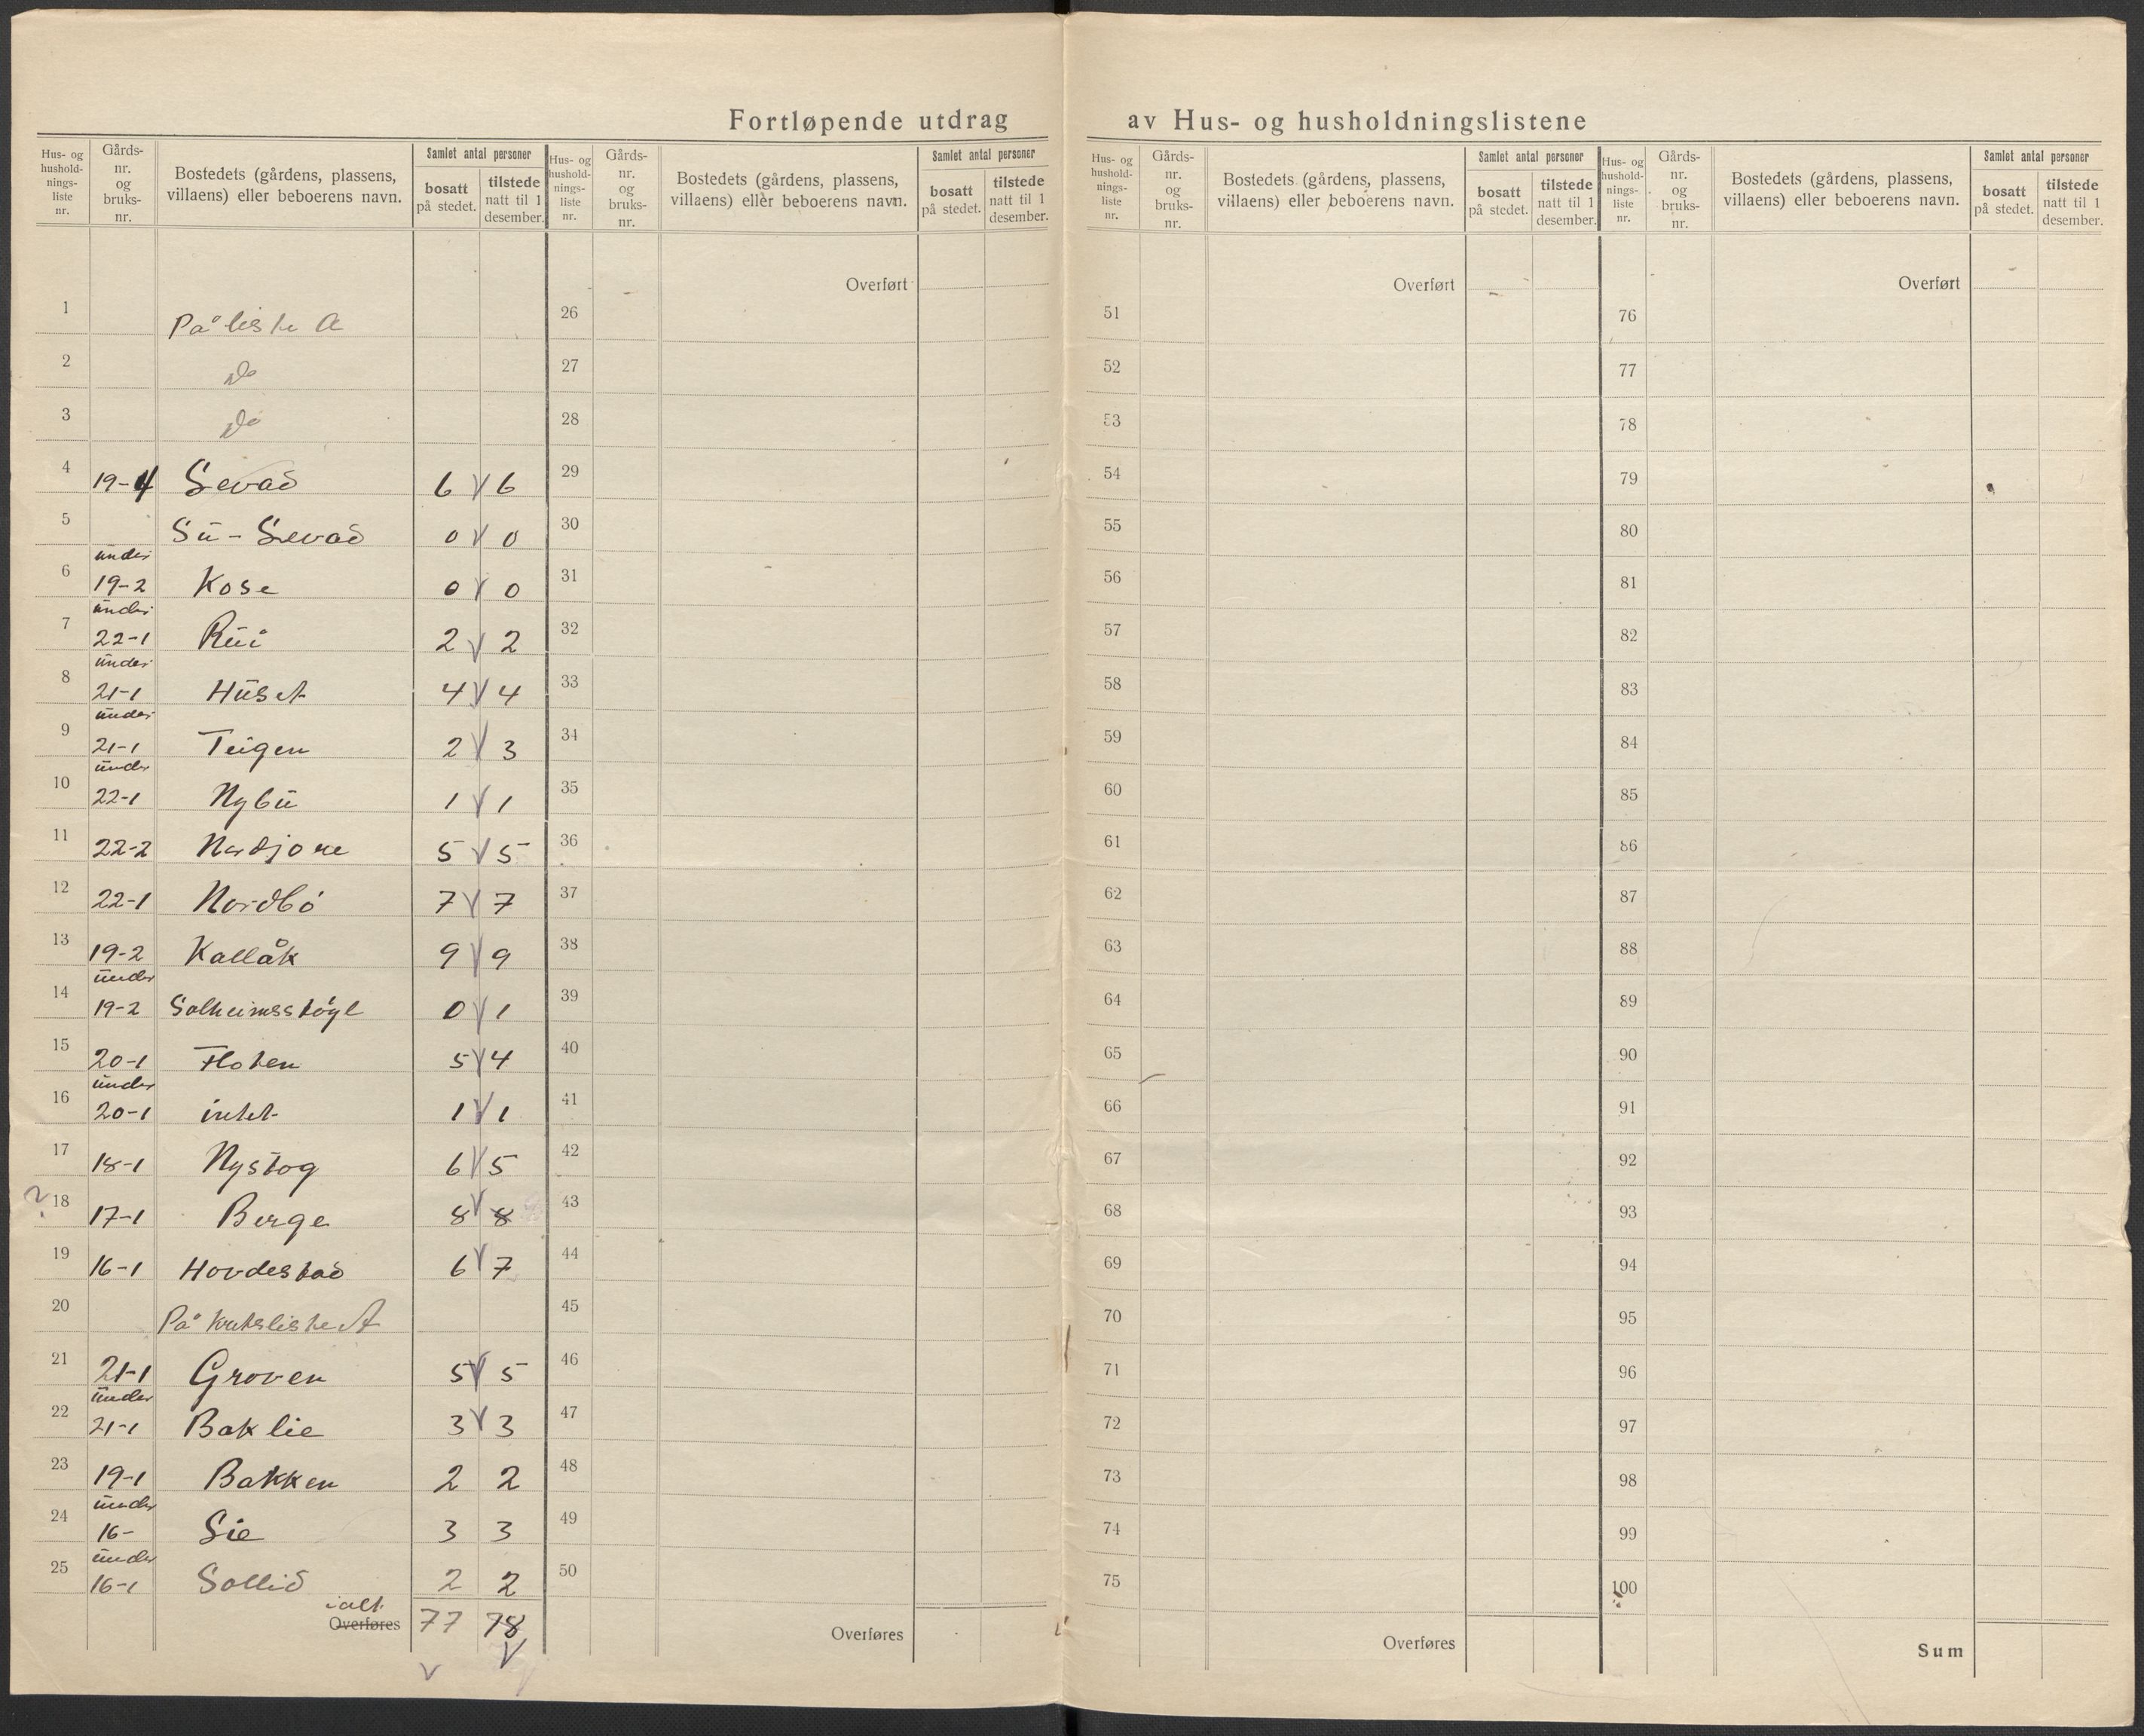 Fortløpende utdrag av Hus- og husholdningslistene
Hus- og hushold-nings-liste nr. | Gårds-nr. og bruks-nr. | Bostedets (gårdens, plassens, villaens) eller beboerens navn. | Samlet antal personer | bosatt på stedet. | tilstede natt til 1 desember.
Hus- og hushold-nings-liste nr. | Gårds-nr. og bruks-nr. | Bostedets (gårdens, plassens, villaens) eller beboerens navn. | Samlet antal personer | bosatt på stedet. | tilstede natt til 1 desember.
Hus- og hushold-nings-liste nr. | Gårds-nr. og bruks-nr. | Bostedets (gårdens, plassens, villaens) eller beboerens navn. | Samlet antal personer | bosatt på stedet. | tilstede natt til 1 desember.
Hus- og hushold-nings-liste nr. | Gårds-nr. og bruks-nr. | Bostedets (gårdens, plassens, villaens) eller beboerens navn. | Samlet antal personer | bosatt på stedet. | tilstede natt til 1 desember.
1 På liste A
2 Do
3 Do
4 19-4 Sevad 6 V 6
5 Su - Sevad 0 V 0
6 under 19-2 Kose 0 V 0
7 under 22-1 Rui 2 V 2
8 under 21-1 Huset 4 V 4
9 under 21-1 Teigen 2 V 3
10 under 22-1 Nybu 1 V 1
11 22-2 Nordjore 5 V 5
12 22-1 Nordbö 7 V 7
13 19-2 Kallåk 9 V 9
14 under 19-2 Solheimsstöyl 0 V 1
15 20-1 Floten 5 V 4
16 under 20-1 intet 1 V 1
17 18-1 Nystog 6 V 5
? 18 17-1 Berge 8 V 8
19 16-1 Hovdestad 6 V 7
20 På kretsliste A
21 21-1 Groven 5 V 5
22 under 21-1 Baklie 3 V 3
23 19-1 Bakken 2 2
24 under 16- Lie 3 3
25 under 16-1 Sollid 2 2
ialt
Overføres 77 78
V V
Overført
26
27
28
29
30
31
32
33
34
35
36
37
38
39
40
41
42
43
44
45
46
47
48
49
50
Overføres
Overført
51
52
53
54
55
56
57
58
59
60
61
62
63
64
65
66
67
68
69
70
71
72
73
74
75
Overføres
Overført
76
77
78
79
80
81
82
83
84
85
86
87
88
89
90
91
92
93
94
95
96
97
98
99
100
Sum